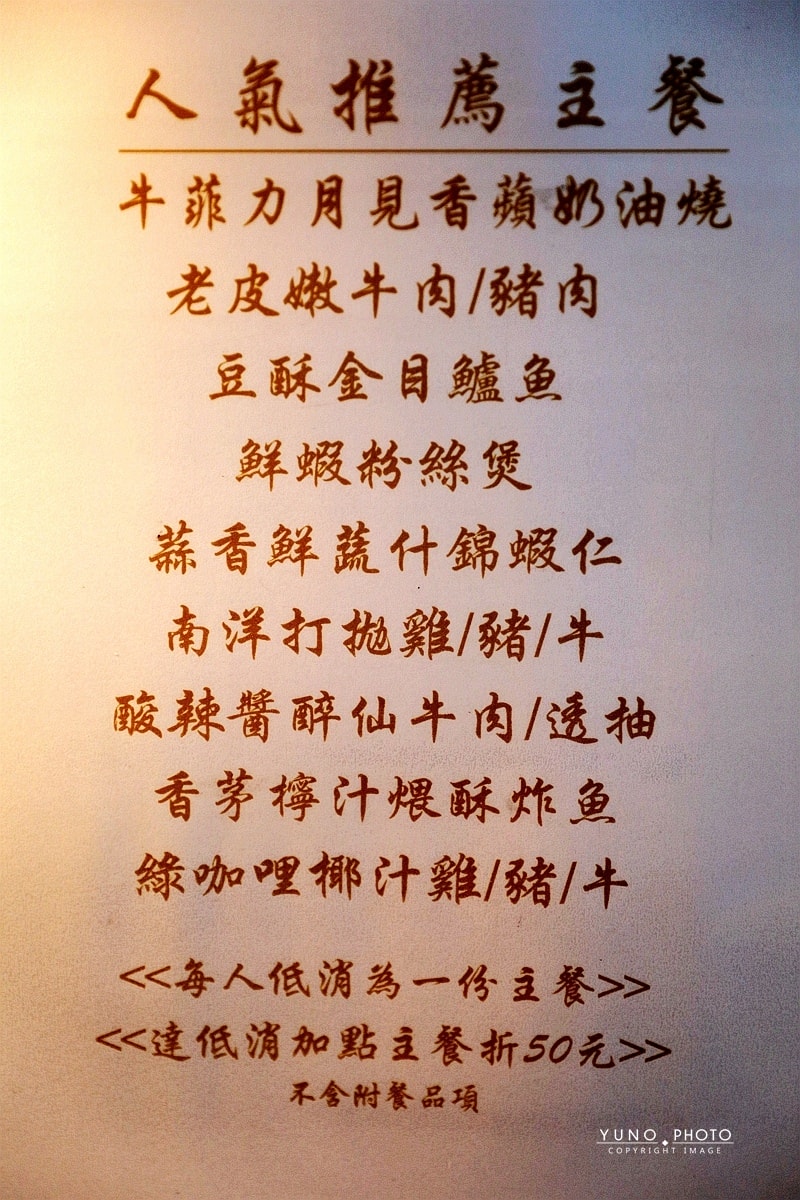 人氣推薦主餐
牛菲力月見香蘋奶油燒
老皮嫩牛肉/豬肉
豆酥金目鱸魚
鮮蝦粉絲煲
蒜香鮮蔬什錦蝦仁
南洋打拋雞/豬/牛
酸辣醬醉仙牛肉/透抽
香茅檸汁煨酥炸魚
綠咖哩椰汁雞/豬/牛
<<每人低消為一份主餐>>
<<達低消加點主餐折50元>>
不含附餐品項
YUNO PHOTO
COPYRIGHT IMAGE